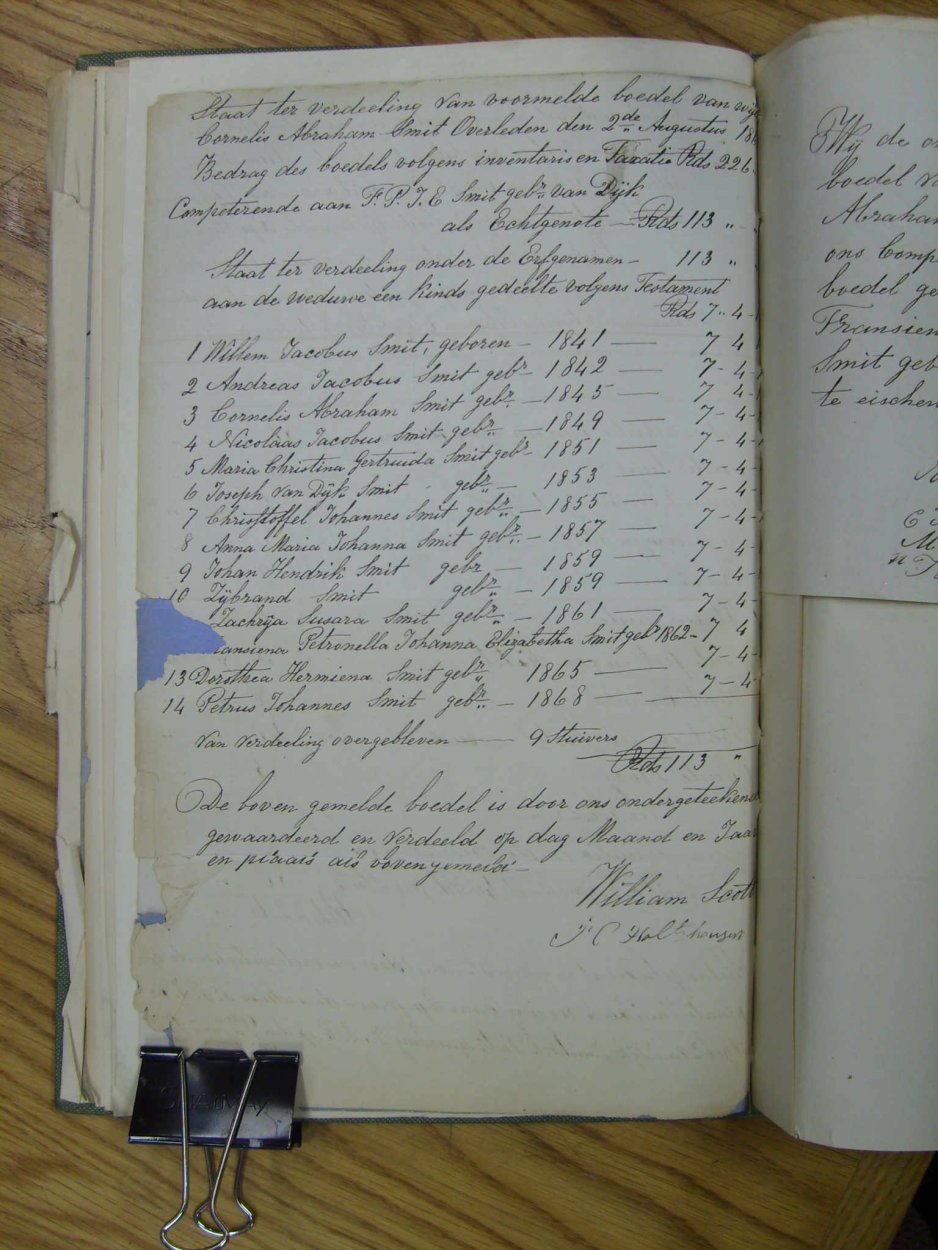 Staat ter verdeeling van voormelde boedel van
Cornelis Abraham Smit Overleden den 2de Augustus
Bedrag des boedels volgens inventaris en Taxatie Rds 226
Competerende aan F. P. J. E Smit gebr. van Dijk
als Echtgenote — Rds 113 „ -
Staat ter verdeeling onder de Erfgenamen — 113 „
aan de weduwe een kinds gedeelte volgens Testament
Rds 7 - 4 -
1 Willem Jacobus Smit, geboren — 1841 — 7 4
2 Andreas Jacobus Smit gebr — 1842 — 7 - 4 -
3 Cornelis Abraham Smit gebr. — 1845 — 7 - 4 -
4 Nicolaas Jacobus Smit gebr. — 1849 — 7 - 4 -
5 Maria Christina Gertruida Smit gebr — 1851 — 7 - 4 -
6 Joseph van Dijk Smit gebr. — 1853 — 7 - 4 -
7 Christoffel Johannes Smit gebr. — 1855 — 7 - 4 -
8 Anna Maria Johanna Smit gebr. — 1857 — 7 - 4 -
9 Johan Hendrik Smit gebr — 1859 — 7 - 4 -
10 Zijbrand Smit gebr. — 1859 — 7 - 4 -
Zachrija Susara Smit gebr. — 1861 — 7 - 4
ansiena Petronella Johanna Elizabetha Smit gebr 1862 — 7 4
13 Dorothea Hermiena Smit gebr. 1865 — 7 - 4 -
14 Petrus Johannes Smit gebr. — 1868 — 7 - 4
Van Verdeeling overgebleven — 9 Stuivers
Rds 113 „
De boven gemelde boedel is door ons ondergeteekend
gewaardeerd en Verdeeld op dag Maand en Jaar
en plaats als bovengemeld —
William Scott
J C Holtzhausen
Wij de
boedel
Abraham
ons Comp
boedel ge
Fransien
Smit geb
te eischen